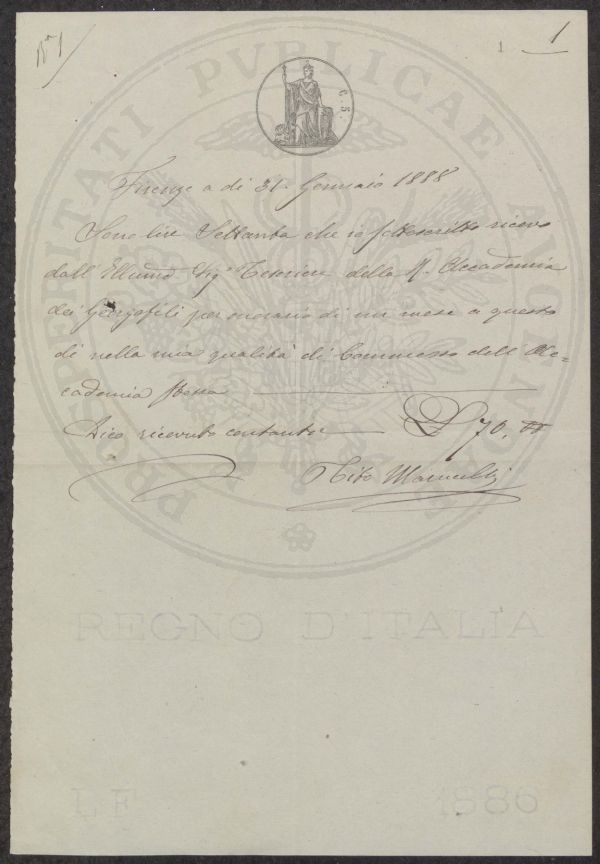 N° 1
1 1
C. 5.
PROSPERITATI PVBLICAE AVGENDAE
Firenze a dì 31. Gennaio 1888
Sono lire Settanta che io sottoscritto ricevo
dall' Illmo Sigr Tesoriere della R. Accademia
dei Georgofili per onorario di un mese a questo
dì nella mia qualità di Commesso dell' Ac=
cademia stessa
Dico ricevute contante L 70. 00
Tito
REGNO D'ITALIA
L F 1886